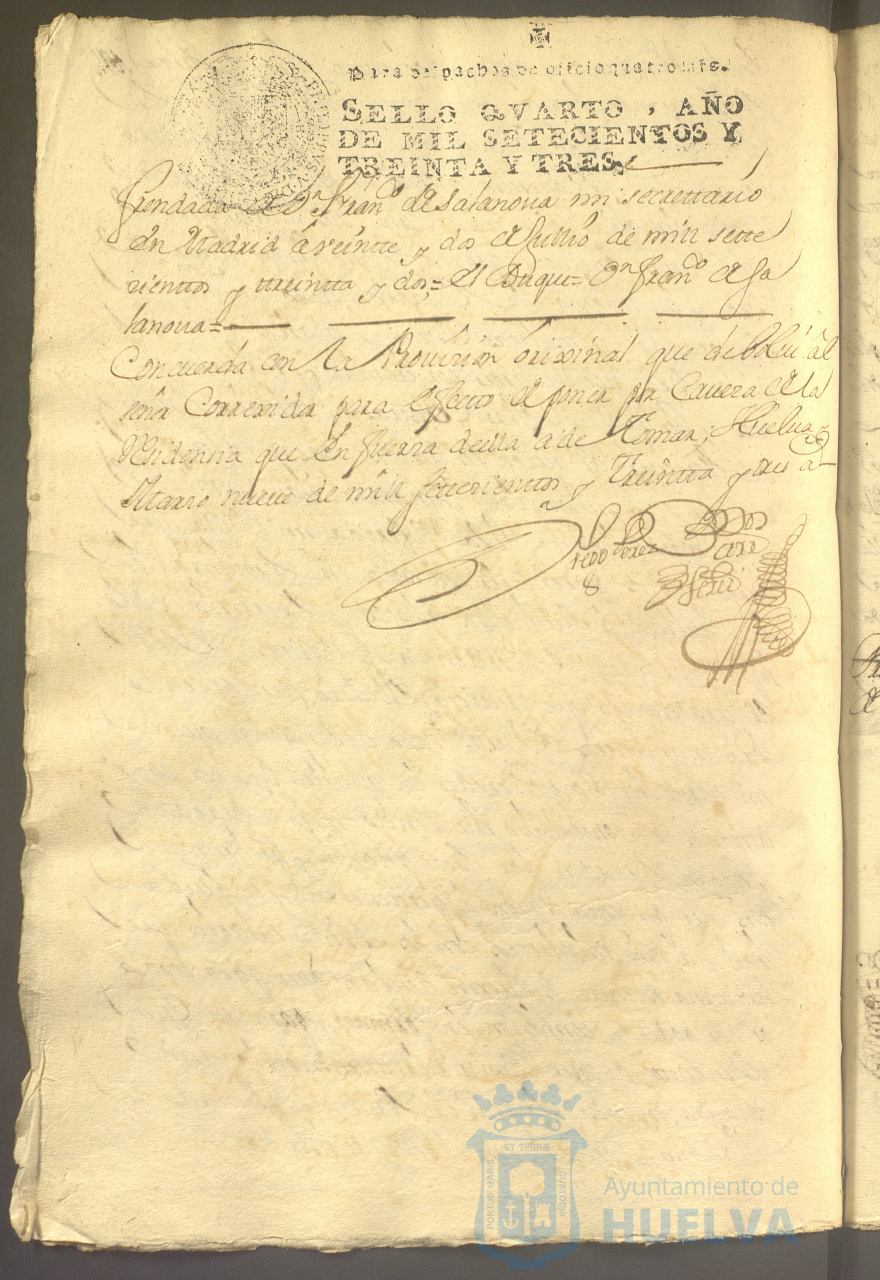 Para despachos de oficio quatro mrs.
SELLO QVARTO, AÑO
DE MIL SETECIENTOS Y
TREINTA Y TRES
frendada de Dn. Franco. de Salanova mi secrettario
en Madrid â veintte y dos de Jullio de mill sette
cienttos y ttreintta y dos = el Duque = Dn. Franco. de Sa
lanova =
Concuerda con la Provission orixinal que debolui al
señor Correxidor para efecto de poner por Cavera de la
Residensia que en fuerza de ella a de tomar; Huelua y
Marzo nueve de mill settecienttos y treintta y tres a
Perez
ET TERRÆ
PORTUS MARIS
CUSTODIA
Ayuntamiento de
HUELVA